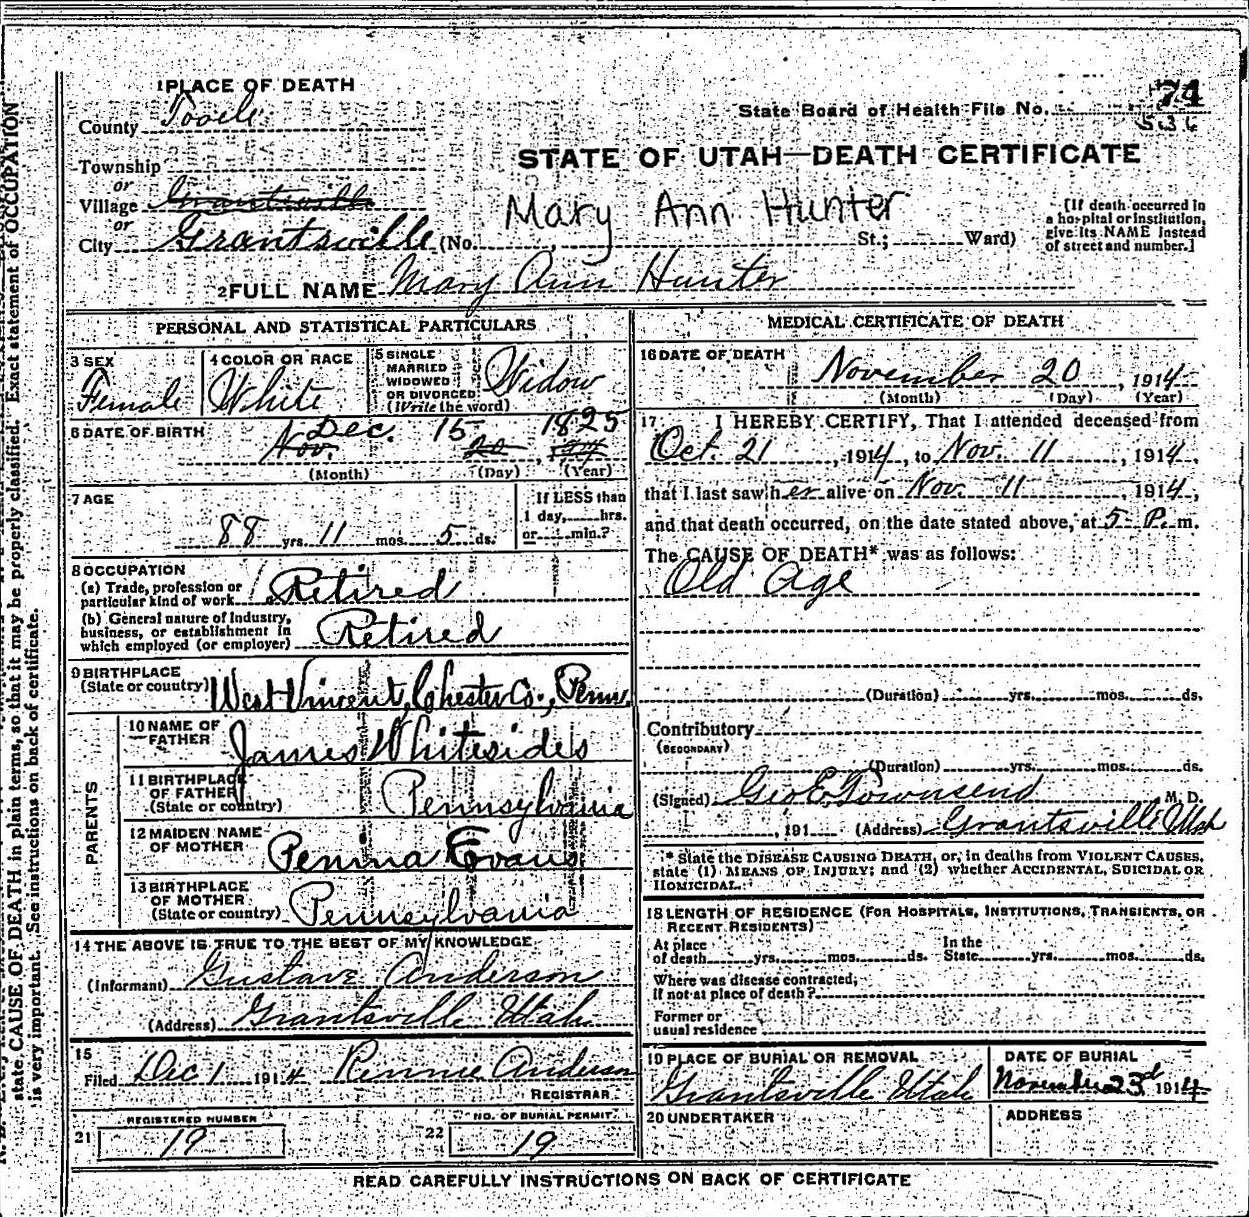 1 PLACE OF DEATH
County Tooele
State Board of Health File No. 74
536
STATE OF UTAH—DEATH CERTIFICATE
Township
or
Village Grantsville
or
City Grantsville (No. , St.; Ward)
Mary Ann Hunter
[If death occurred in
a hospital or institution,
give its NAME instead
of street and number.]
2 FULL NAME Mary Ann Hunter
PERSONAL AND STATISTICAL PARTICULARS
3 SEX
Female
4 COLOR OR RACE
White
5 SINGLE
MARRIED
WIDOWED
OR DIVORCED
(Write the word)
Widow
6 DATE OF BIRTH
Dec. 15 1825
Nov. 20,
(Month) (Day) (Year)
7 AGE
88 yrs. 11 mos. 5 ds.
If LESS than
1 day, hrs.
or min.?
8 OCCUPATION
(a) Trade, profession or
particular kind of work Retired
(b) General nature of industry,
business, or establishment in
which employed (or employer) Retired
9 BIRTHPLACE
(State or country) West Vincent, Chester Co., Penn.
PARENTS
10 NAME OF
FATHER James Whitesides
11 BIRTHPLACE
OF FATHER
(State or country) Pennsylvania
12 MAIDEN NAME
OF MOTHER Penina Evans
13 BIRTHPLACE
OF MOTHER
(State or country) Pennsylvania
14 THE ABOVE IS TRUE TO THE BEST OF MY KNOWLEDGE
(Informant) Gustave Anderson
(Address) Grantsville Utah
15
Filed Dec 1 1914 Rennie Anderson
REGISTRAR
REGISTERED NUMBER
21 19
NO. OF BURIAL PERMIT
22 19
MEDICAL CERTIFICATE OF DEATH
16 DATE OF DEATH
November 20, 1914
(Month) (Day) (Year)
17 I HEREBY CERTIFY, That I attended deceased from
Oct. 21, 1914, to Nov. 11, 1914,
that I last saw her alive on Nov. 11, 1914,
and that death occurred, on the date stated above, at 5 P. m.
The CAUSE OF DEATH* was as follows:
Old Age
(Duration) yrs. mos. ds.
Contributory
(SECONDARY)
(Duration) yrs. mos. ds.
(Signed) Geo E. Townsend M. D.
, 191 (Address) Grantsville Utah
* State the DISEASE CAUSING DEATH, or, in deaths from VIOLENT CAUSES,
state (1) MEANS OF INJURY; and (2) whether ACCIDENTAL, SUICIDAL OR
HOMICIDAL.
18 LENGTH OF RESIDENCE (FOR HOSPITALS, INSTITUTIONS, TRANSIENTS, OR
RECENT RESIDENTS)
At place
of death yrs. mos. ds.
In the
State yrs. mos. ds.
Where was disease contracted,
if not at place of death?
Former or
usual residence
19 PLACE OF BURIAL OR REMOVAL
Grantsville Utah
DATE OF BURIAL
November 23d 1914
20 UNDERTAKER
ADDRESS
READ CAREFULLY INSTRUCTIONS ON BACK OF CERTIFICATE
state CAUSE OF DEATH in plain terms, so that it may be properly classified. Exact statement of OCCUPATION
is very important. See instructions on back of certificate.